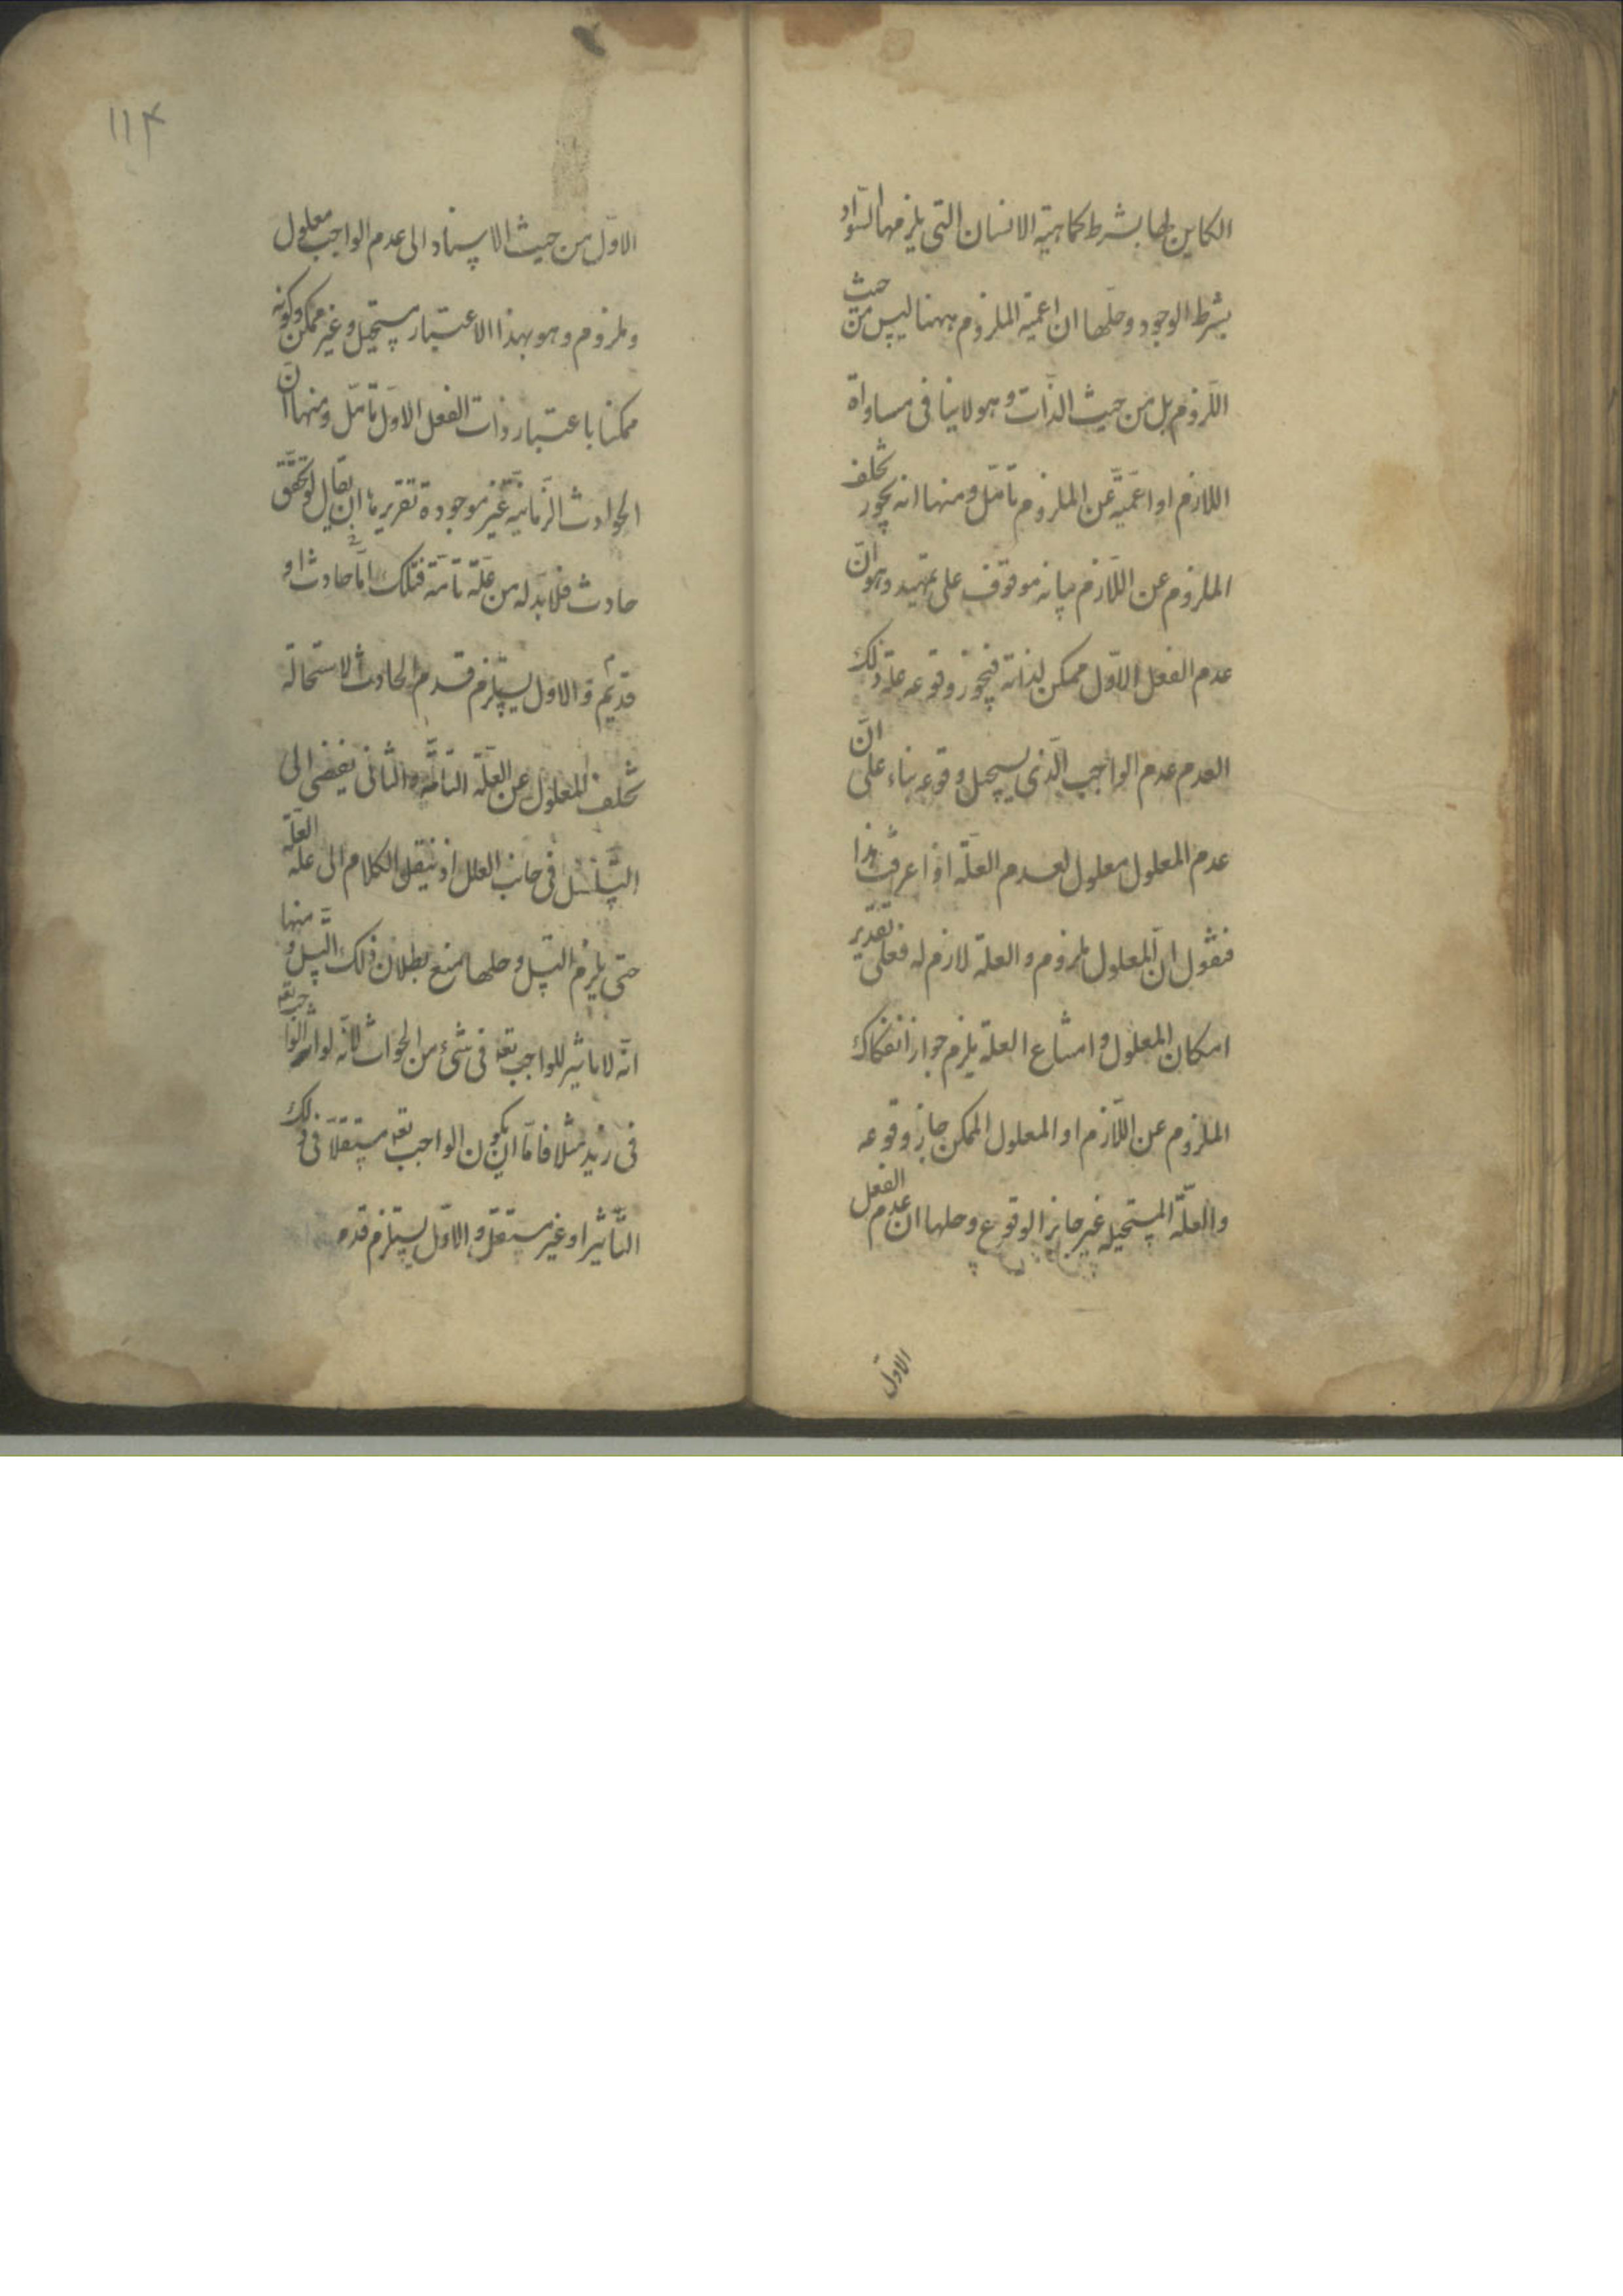 الكاين لها بشرط كماهية الانسان التى يلزمها السواد
بشرط الوجود وحلها ان اعمية الملزوم ههنا ليس من حيث
اللزوم بل من حيث الذات وهو لا ينافى مساواة
اللازم او اعمية عن الملزوم تأمل ومنها انه يجوز تخلف
الملزوم عن اللازم بيانه موقوف على تمهيد وهو ان
عدم الفعل الاول ممكن لذاته فيجوز وقوعه علة ذلك
العدم عدم الواجب الذى يستحيل وقوعه بناء على ان
عدم المعلول معلول لعدم العلة اذا عرفت هذا
فنقول ان المعلول ملزوم والعلة لازم له فعلى تقدير
امكان المعلول وامتناع العلة يلزم جواز انفكاك
الملزوم عن اللازم او المعلول الممكن جاز وقوعه
والعلة المستحيله غير جايز الوقوع وحلها ان عدم الفعل
الاول
١١٤
الاول من حيث الاستناد الى عدم الواجب معلول
وملزوم وهو بهذا الاعتبار مستحيل وغير ممكن وكونه
ممكنا باعتبار ذات الفعل الاول تأمل ومنها ان
الحوادث الزمانية غير موجودة تقريرها ان يقال لو تحقق
حادث فلا بد له من علة تامة فتلك اما حادث او
قديم و الاول يستلزم قدم الحادث لاستحالة
تخلف المعلول عن العلة التامة والثانى يفضى الى
التسلسل فى جانب العلل اذ ننقل الكلام الى علة العلة
حتى يلزم التسل وحلها منع بطلان ذلك التسل ومنها
انه لا تاثير للواجب تعه فى شىء من الحوادث لانه لو اثر الواجب تعه
فى زيد مثلا فاما ان يكون الواجب تعه مستقلا فى ذلك
التأثير او غير مستقل و الاول يستلزم قدم